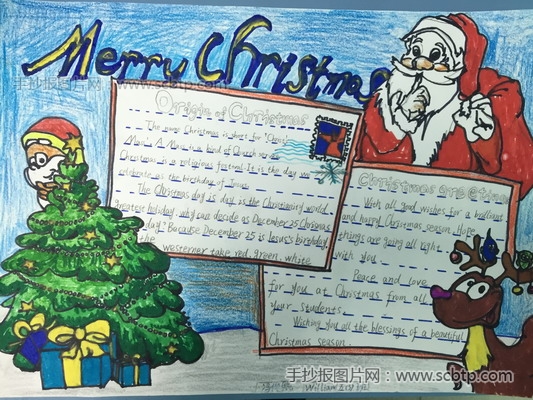 Merry Christmas
Origin of Christmas
The name Christmas is short for "Christ
Mass". A Mass is a kind of Church service
Christmas is a religious festival. It is the day we
celebrate as the birthday of Jesus.
The Christmas day is day the Christianity world
greatest holiday. why can decide as December 25 Christmas
day? Because December 25 is Jesus's birthday
the westerner take red, green, white
Christmas greeting
With all good wishes for a brilliant
and happy Christmas season. Hope
things are going all right
with you.
Peace and love
for you at Christmas from all
your students.
Wishing you all the blessings of a beautiful
Christmas season
William
手抄报图片网 www.scbtp.com
手抄报图片网：www.scbtp.com